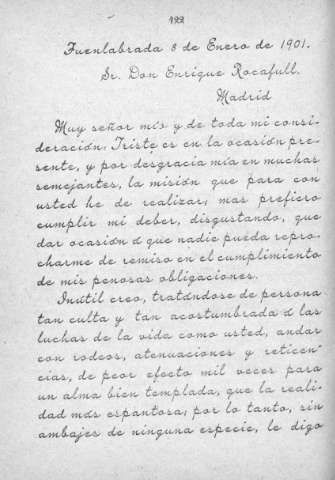 122
Fuenlabrada 8 de Enero de 1901.
Sr. Don Enrique Rocafull.
Madrid
Muy señor mío y de toda mi consi-
deración: Triste es en la ocasión pre-
sente, y por desgracia mía en muchas
semejantes, la misión que para con
usted he de realizar; mas prefiero
cumplir mi deber, disgustando, que
dar ocasión á que nadie pueda repro-
charme de remiso en el cumplimiento
de mis penosas obligaciones.
Inútil creo, tratándose de persona
tan culta y tan acostumbrada á las
luchas de la vida como usted, andar
con rodeos, atenuaciones y reticen-
cias, de peor efecto mil veces para
un alma bien templada, que la reali-
dad más espantosa; por lo tanto, sin
ambajes de ninguna especie, le digo